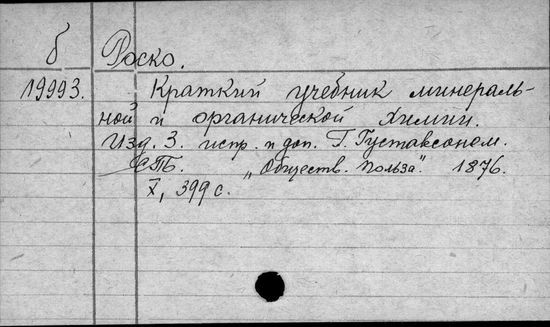 б Роско.
19993. Краткий учебник минераль-
ной и органической химии.
Изд. 3. испр. и доп. Г. Густавсоном.
СПБ. „Обществ. польза". 1876.
X, 399 с.